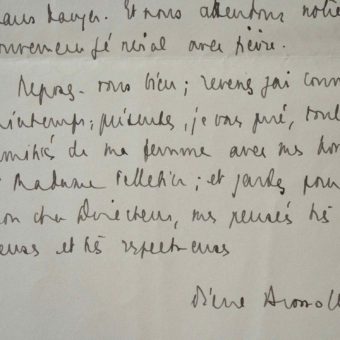 sans danger. Et nous attendons notre
mouvement général avec fièvre.
Reposez-vous bien; revenez
printemps; présentez, je vous prie, tout
amitiés de ma femme avec mes hom
Madame Pelletier; et gardez pour
mon cher Directeur, mes pensées très
et très respectueuses
Pierre